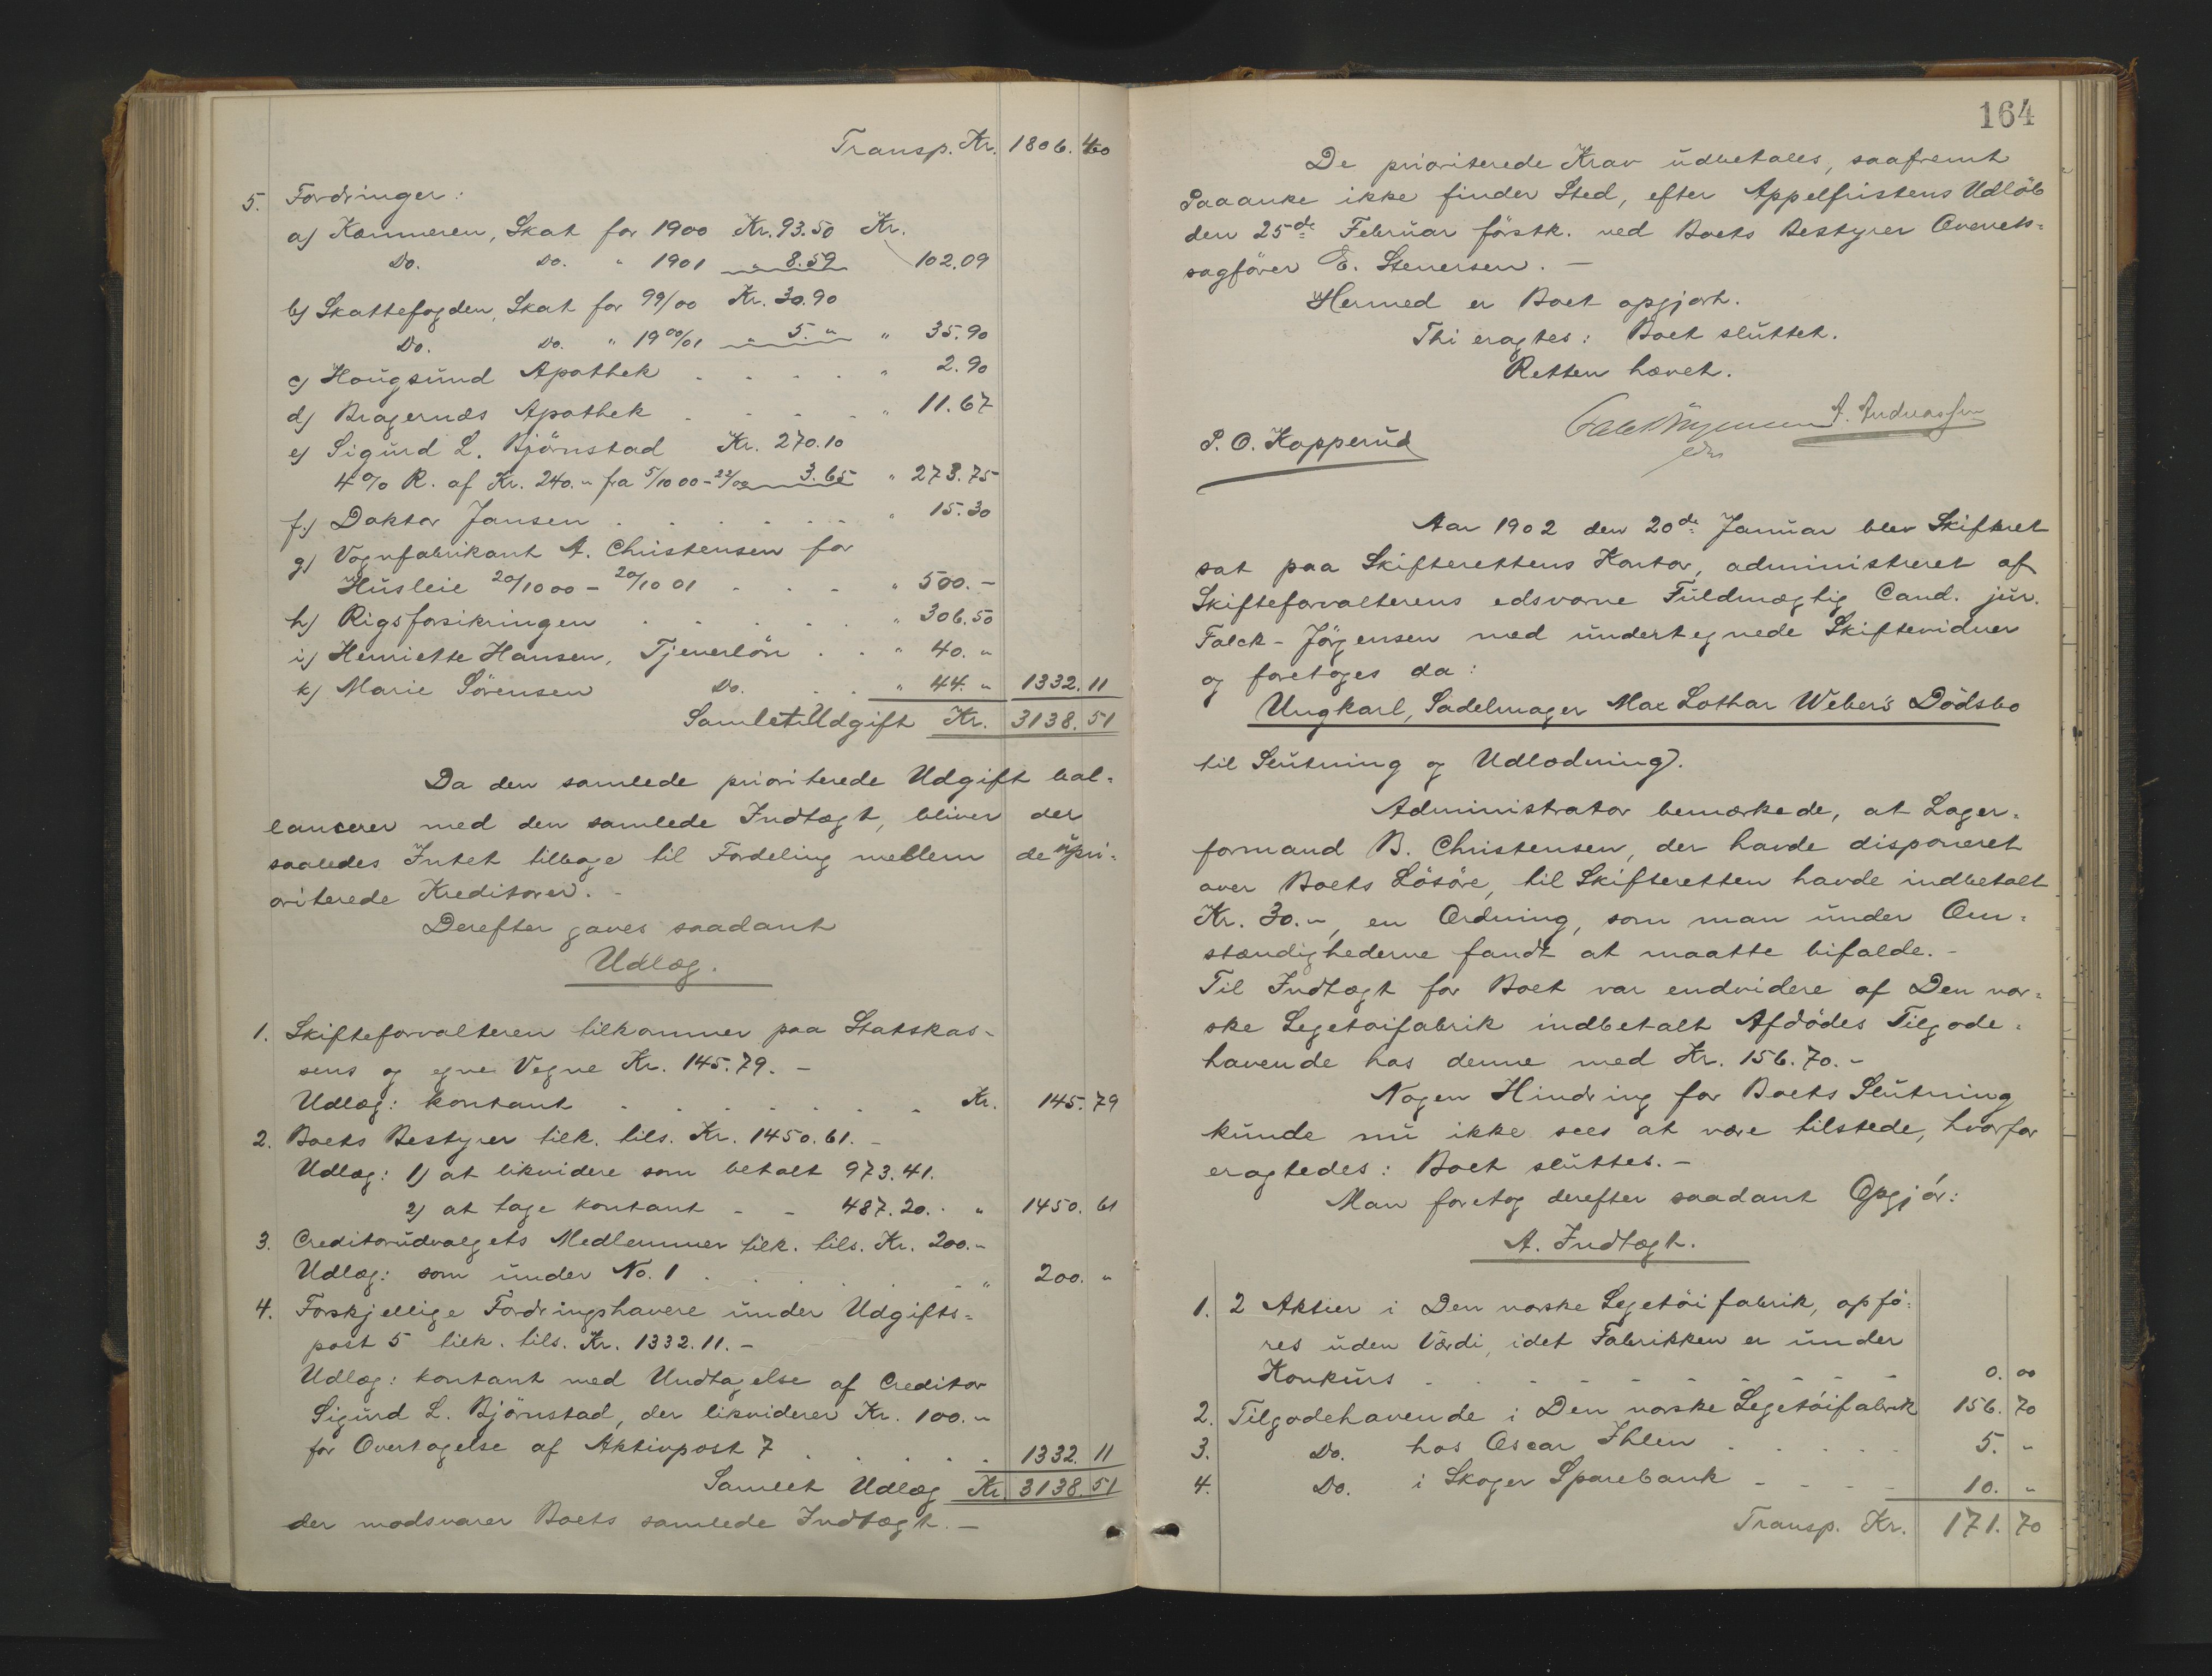 Transp. Kr. 1806. 40
5. Fordringer:
a) Kæmneren, Skat for 1900 Kr. 93.50 Kr.
Do. Do. " 1901 " 8.59 102.09
b) Skattefogden, Skat for 99/00 Kr. 30.90
Do. Do. " 19 00/01 " 5. " " 35.90
c) Hougsund Apothek . . . . " 2.90
d) Bragernæs Apothek . . . . " 11.67
e) Sigurd L. Björnstad Kr. 270.10
4 % R. af Kr. 240. " fra 5/10 00 - 3.65 " 273.75
f.) Doktor Jansen . . . . . . " 15.30
g) Vognfabrikant A. Christensen for
Husleie 20/10 00 - 20/10 01 . . . " 500. -
h) Rigsforsikringen . . . . . " 306.50
i) Henriette Hansen, Tjenerlön . . " 40. "
k) Marie Sörensen Do. . . " 44. " 1332. 11
Samlet Udgift Kr. 3138. 51
Da den samlede prioriterede Udgift bal=
lancerer med den samlede Indtægt, bliver der
saaledes Intet tilbage til Fordeling mellem de upri=
oriterede Kreditorer. -
Derefter gaves saadant
Udlæg.
1. Skifteforvalteren tilkommer paa Statskas-
sens og egne Vegne Kr. 145.79. -
Udlæg: kontant . . . . . . . Kr. 145. 79
2. Boets Bestyrer tilk. tils. Kr. 1450.61. -
Udlæg: 1) at likvidere som betalt 973.41.
2) at tage kontant - - 487.20. . " 1450. 61
3. Creditorudvalgets Medlemmer tilk. tils. Kr. 200. -
Udlæg: som under No. 1 . . . . . . " 200. "
4. Forskjellige Fordringshavere under Udgifts=
post 5 tilk. tils. Kr. 1332.11. -
Udlæg: kontant med Undtagelse af Creditor
Sigurd L. Björnstad, der likviderer Kr. 100. "
for Overtagelse af Aktivpost 7 . . . . . 1332. 11
Samlet Udlæg Kr. 3138. 51
der modsvarer Boets samlede Indtægt. -
164
De prioriterede Krav udbetales, saafremt
Paaanke ikke finder Sted, efter Appelfristens Udlöb
den 25de Februar förstk. ved Boets Bestyrer Overrets=
sagförer E. Stenersen. -
Hermed er Boet opgjort.
Thi eragtes: Boet sluttet.
Retten hævet.
A. Andreassen
P. O. Kopperud
Aar 1902 den 20de Januar blev Skifteret
sat paa Skifterettens Kontor, administreret af
Skifteforvalterens edsvorne Fuldmægtig Cand. jur.
Falck-Jörgensen med undertegnede Skiftevidner
og foretoges da:
Ungkarl, Sadelmager Max Lothar Weber's Dödsbo
til Slutning og Udlodning.
Administrator bemærkede, at Lager=
formand B. Christensen, der havde disponeret
over Boets Lösöre, til Skifteretten havde indbetalt
Kr. 30. ", en Ordning, som man under Om=
stændighederne fandt at maatte bifalde. -
Til Indtægt for Boet var endvidere af Den nor=
ske Legetöifabrik indbetalt Afdödes Tilgode=
havende hos denne med Kr. 156.70. -
Nogen Hindring for Boets Slutning
kunde nu ikke sees at være tilstede, hvorfor
eragtedes: Boet sluttes. -
Man foretog derefter saadant Opgjör:
A. Indtægt.
1. 2 Aktier i Den norske Legetöifabrik, opfö=
res uden Værdi, idet Fabrikken er under
Konkurs - - - - - - - - 0. 00
2. Tilgodehavende i Den norske Legetöifabrik 156. 70
3. Do. hos Oscar Ihlen . . . . . 5. "
4. Do. i Skoger Sparebank - - - - 10. "
Transp. Kr. 171. 70